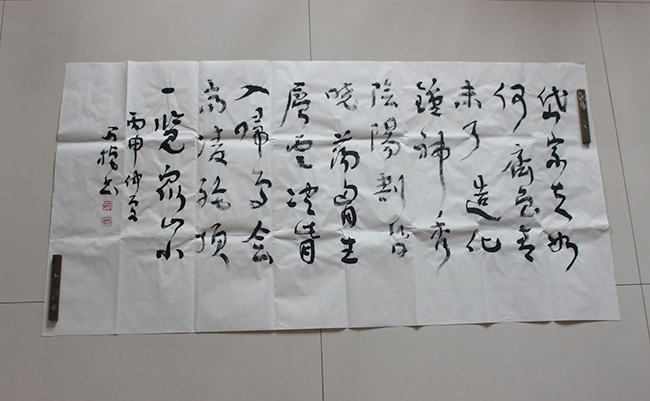 岱宗夫如
何齊魯青
未了造化
鍾神秀
陰陽割昏
曉蕩胸生
層雲決眥
入歸鳥會
當凌絶頂
一覽衆山小
丙申仲夏